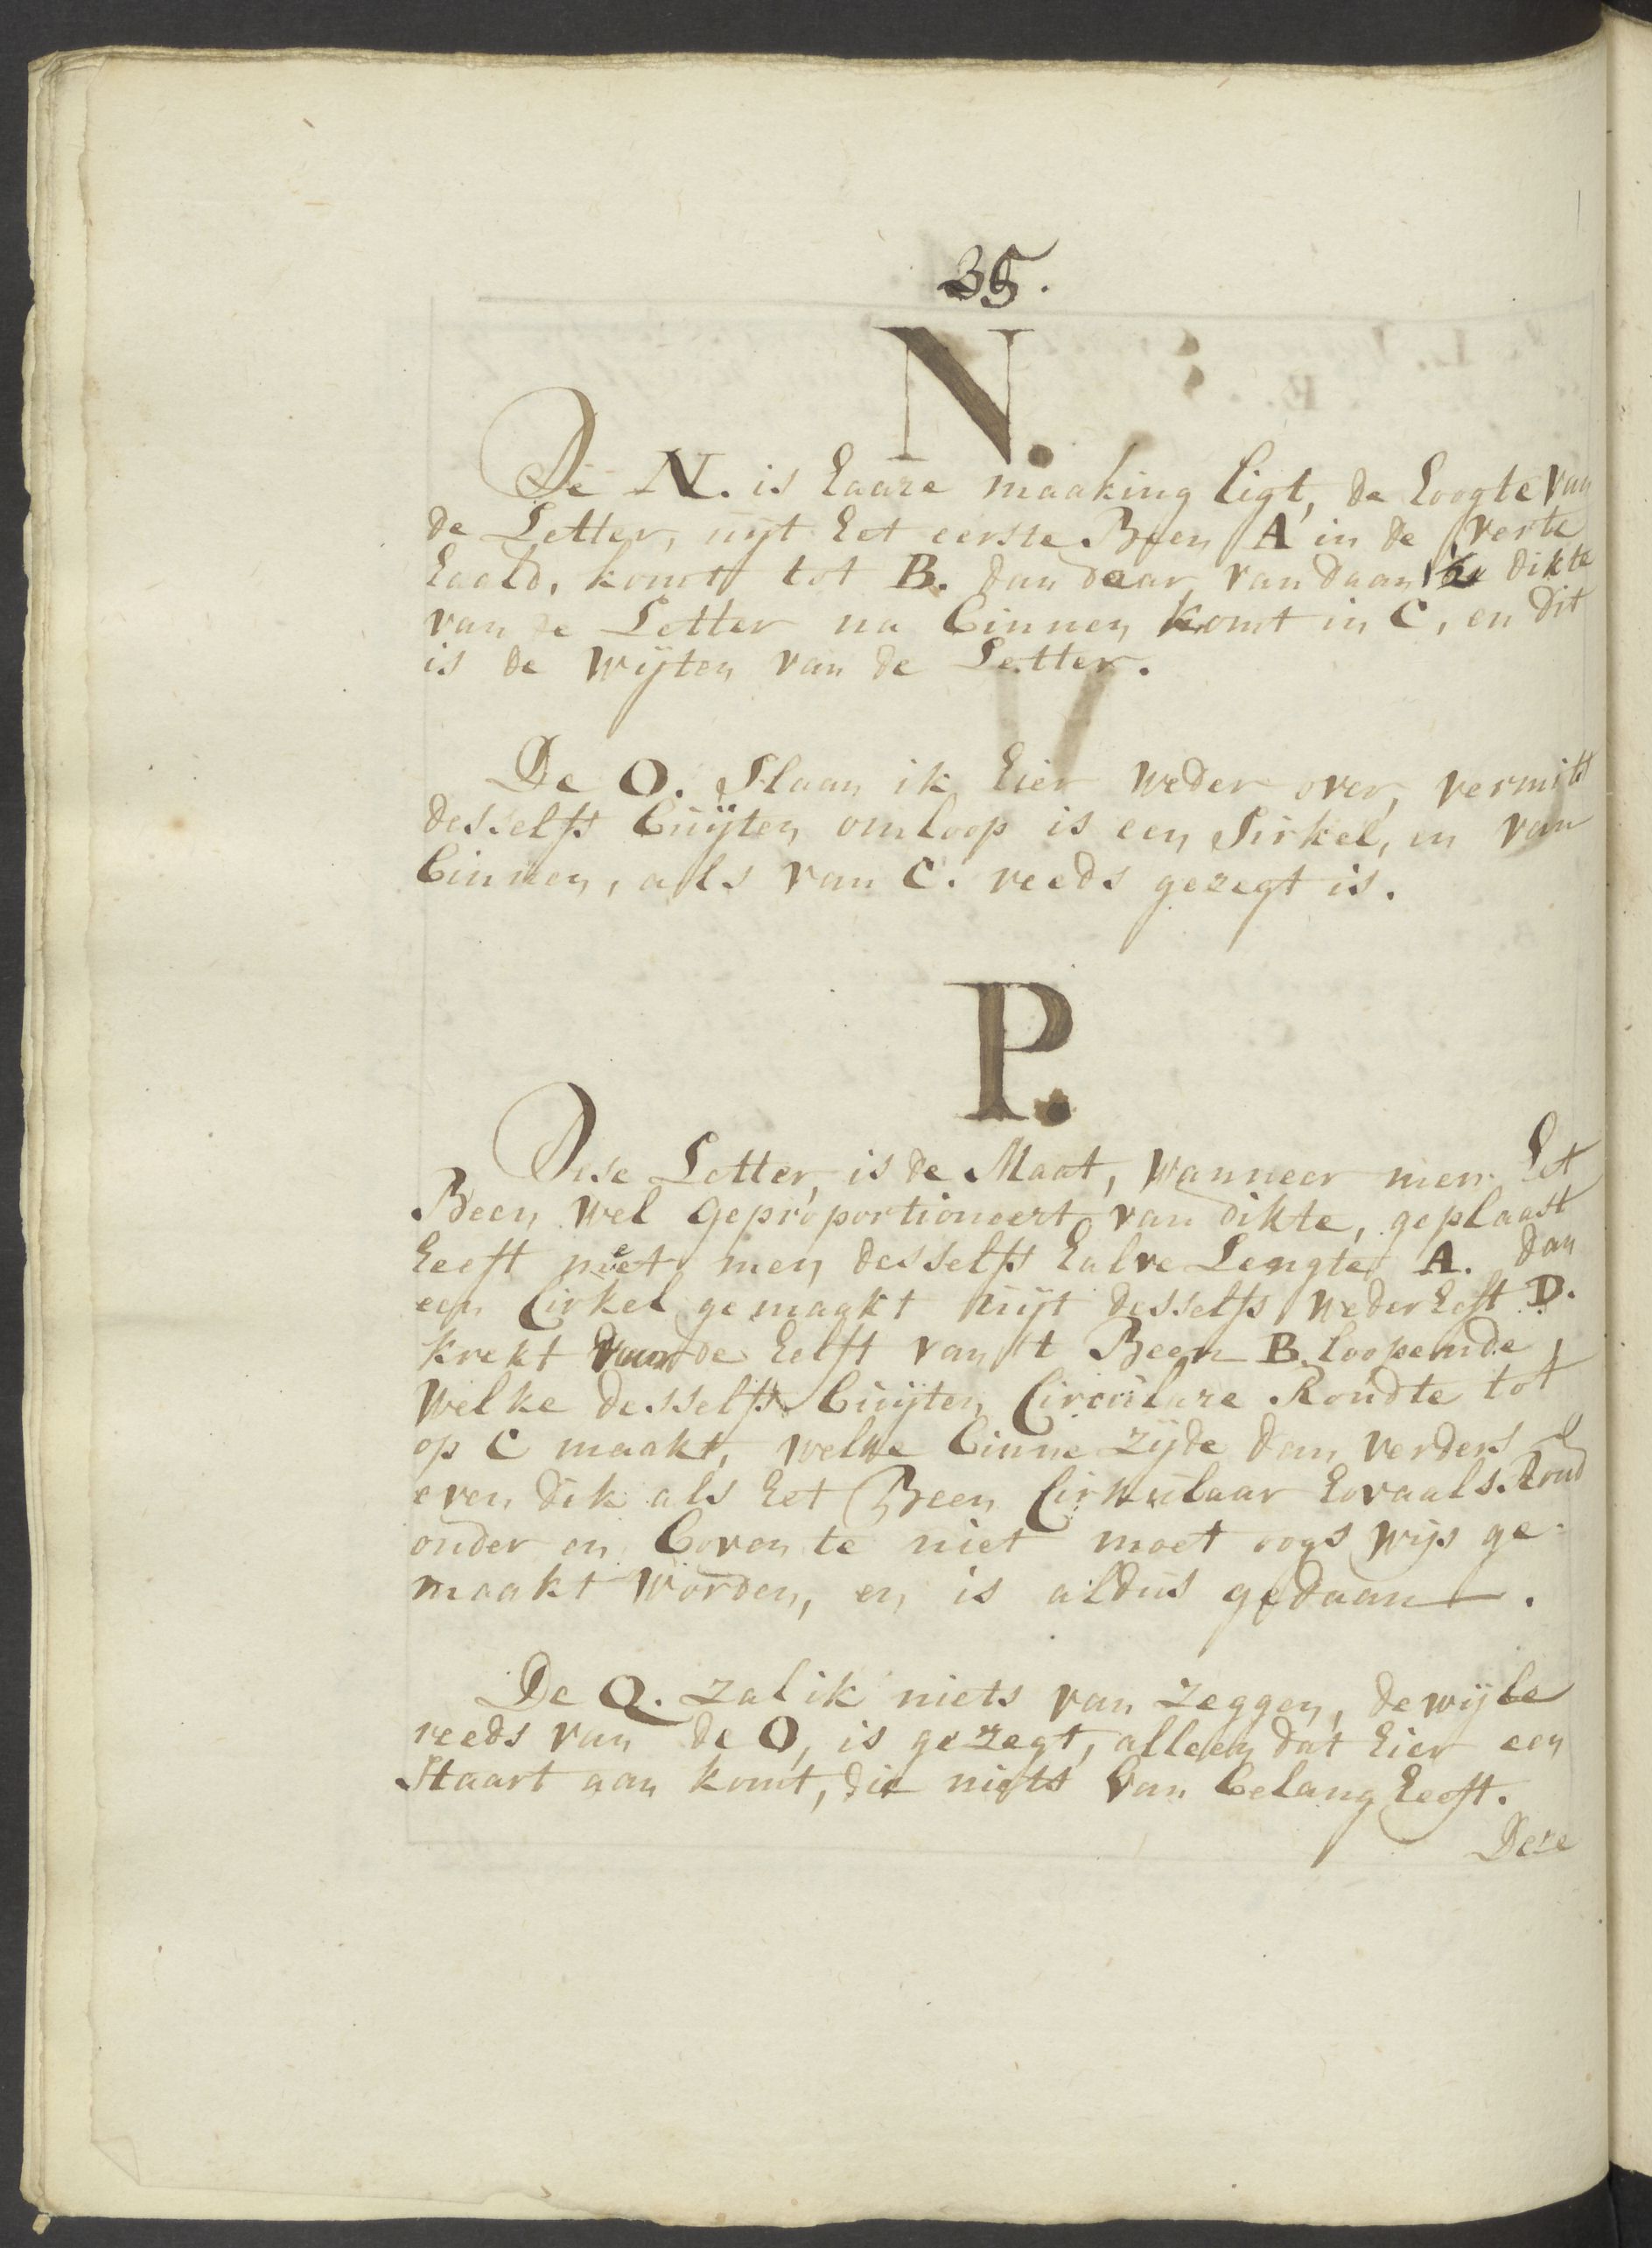 35.
N.
De N. is haare maaking ligt, de hoogte van
de Letter, uijt het eerste Been A in de verte
haald, komt tot B. dan daar van daan de dikte
van de Letter na binnen komt in C, en dit
is de wijten van de Letter.
De O. Slaan ik hier weder over, vermits
desselfs buijten omloop is een Sirkel, en van
binnen, als van C. reeds gezegt is.
P.
Dese Letter, is de Maat, wanneer men het
Been wel geproportioneert van dikte, geplaast
heeft meet men desselfs halve Lengte A. dan
een Cirkel gemaakt uijt desselfs wederheft D.
krekt van de helft van 't Been B. loopende
welke desselfs buijten Circulare Rondte tot
op C maakt, welke binne zijde dan verders
even dik als het Been Cirkulaar Rond
onder en boven te niet moet oogs wijs ge-
maakt worden, en is aldus gedaan.
De Q. zal ik niets van zeggen, dewijle
reeds van de O, is gezegt, alleen dat hier een
Staart aan komt, die niets van belang heeft.
Deze